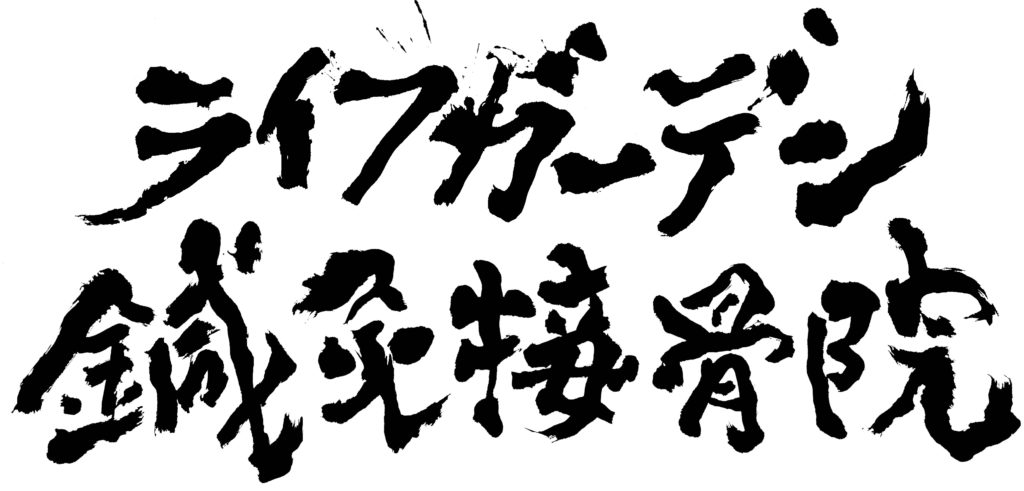 ライフガーデン
鍼灸接骨院